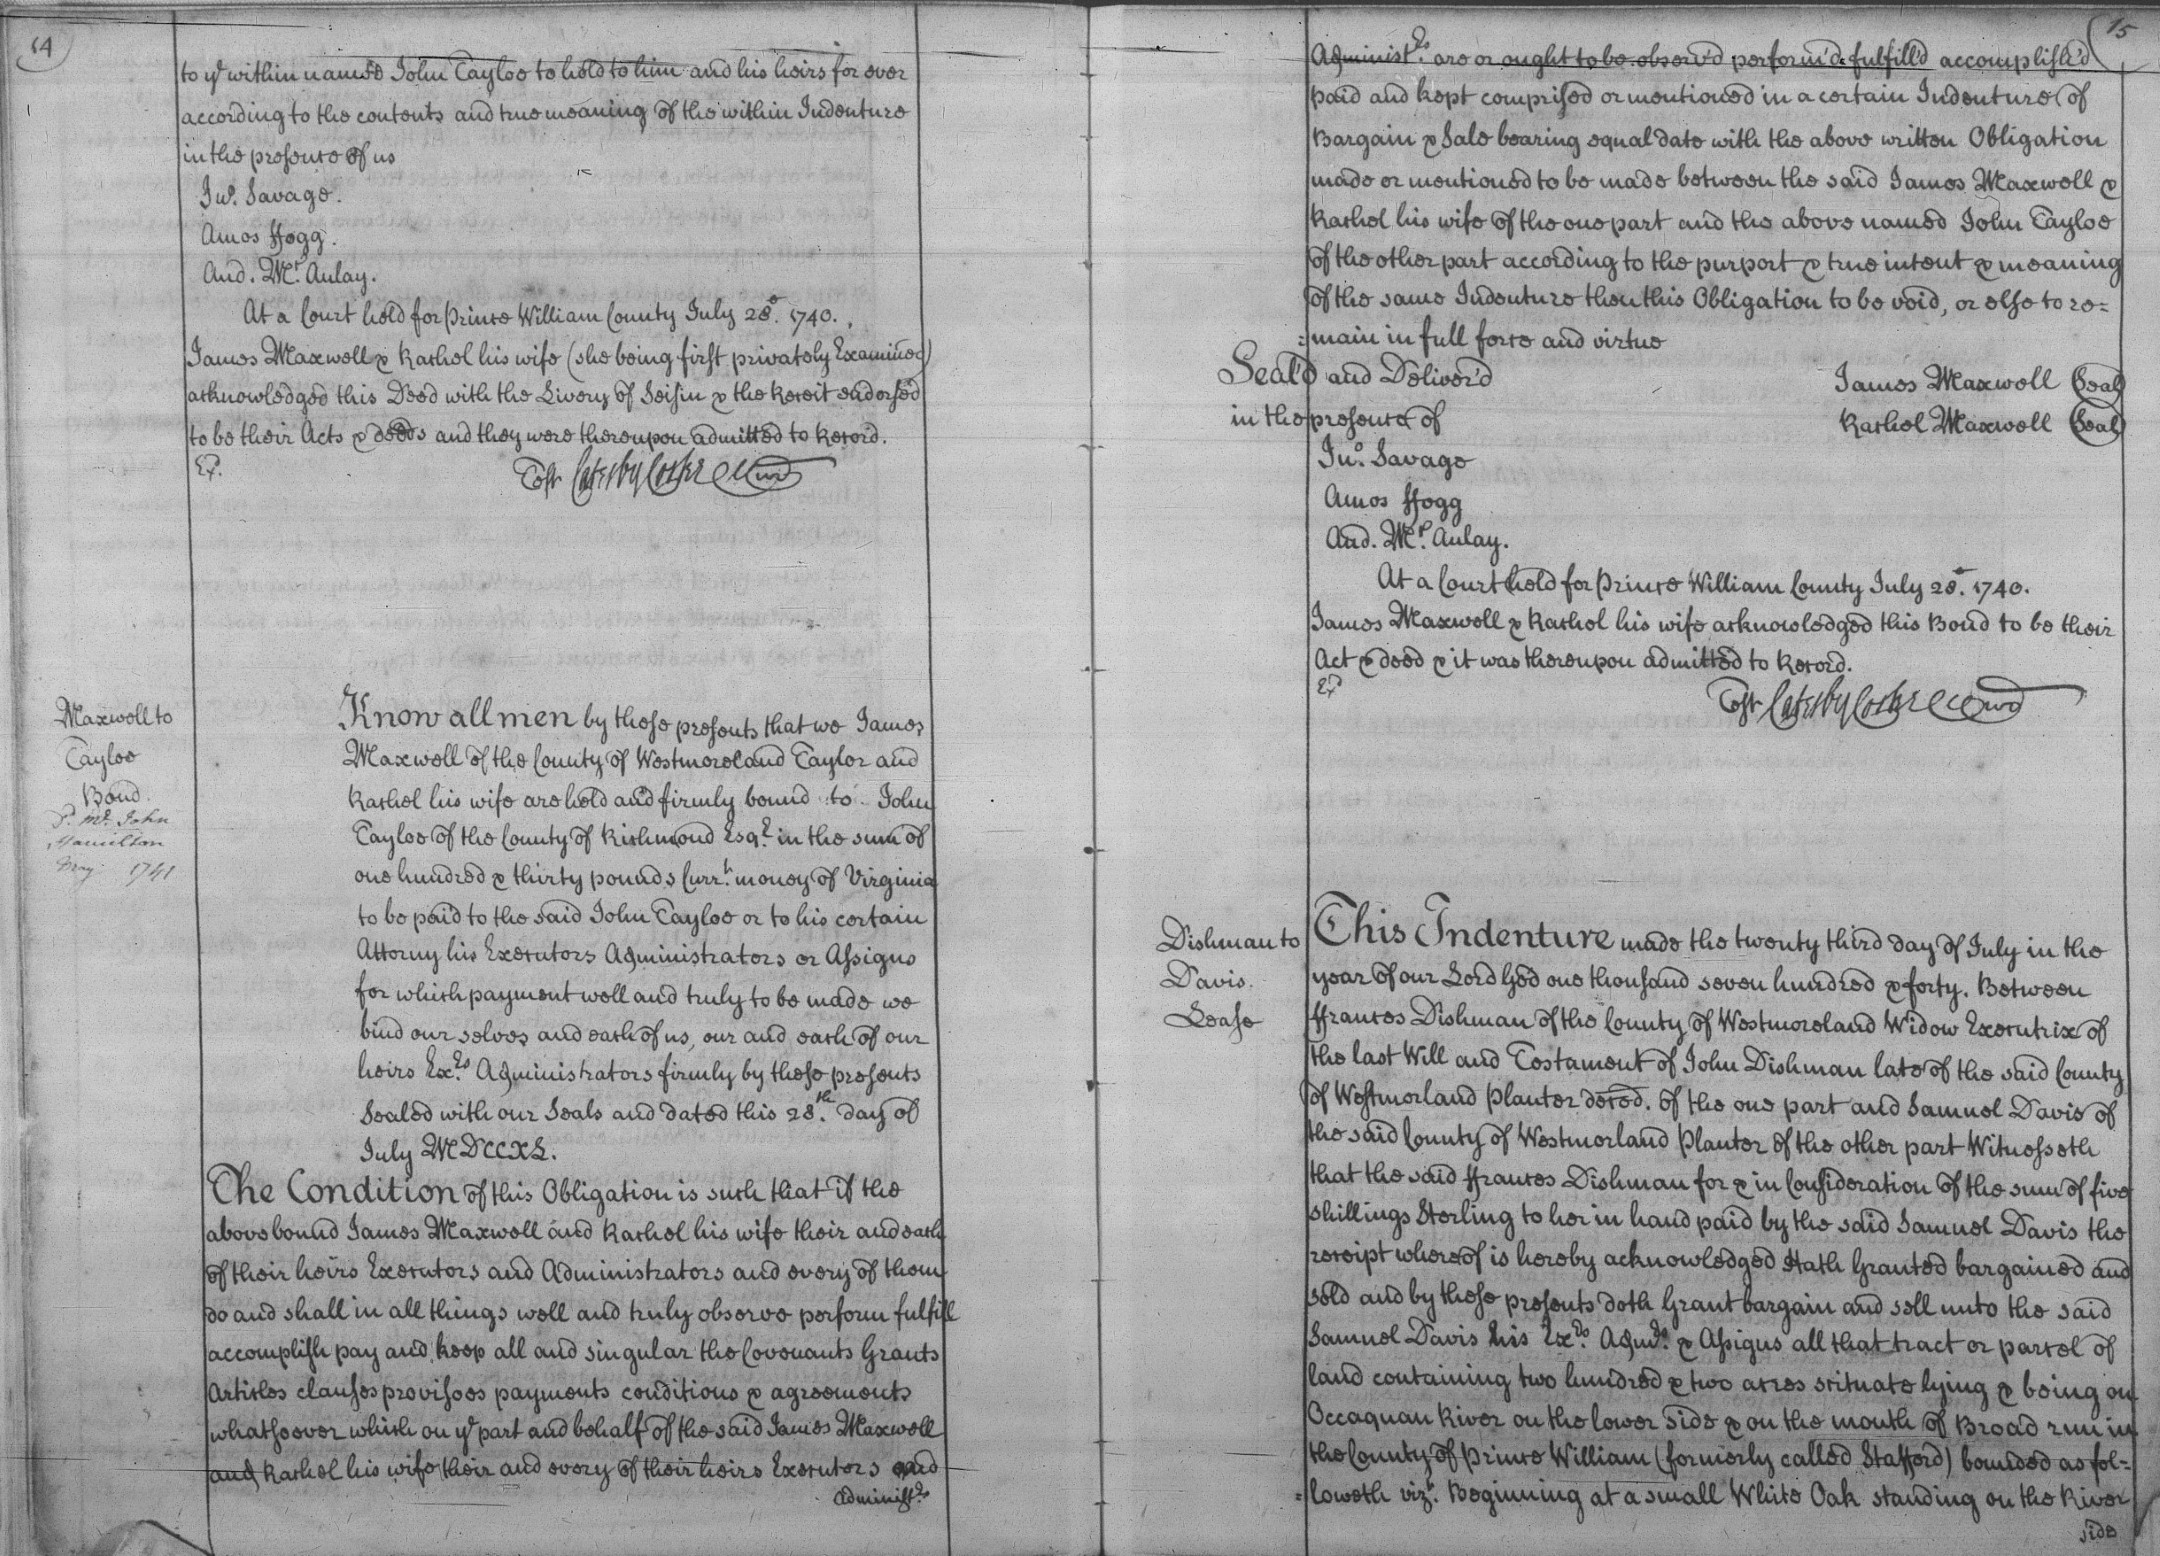 14
to yᵉ within named John Tayloe to hold to him and his heirs for ever
according to the contents and true meaning of the within Indenture
in the presence of us
Jnᵒ. Savage.
Amos ffogg.
And. Mᶜ. Aulay.
At a Court held for Prince William County July 28ᵒ. 1740.
James Maxwell & Rachel his wife (she being first privately Examined)
acknowledged this Deed with the Livery of Seisin & the Receit endorsed
to be their Acts & deeds and they were thereupon admitted to Record.
Exᵈ.
Test Catesby Cocke ClCurᵗ
Maxwell to
Tayloe
Bond.
Dᵈ. Mʳ. John
Hamilton
May 1741
Know all men by these presents that we James
Maxwell of the County of Westmoreland Taylor and
Rachel his wife are held and firmly bound to John
Tayloe of the County of Richmond Esqʳ. in the sum of
one hundred & thirty pounds Currᵗ. money of Virginia
to be paid to the said John Tayloe or to his certain
Attorny his Executors Administrators or Assigns
for which payment well and truly to be made we
bind our selves and each of us, our and each of our
heirs Exʳˢ. Administrators firmly by these presents
Sealed with our Seals and dated this 28ᵗʰ. day of
July MDCCXL.
The Condition of this Obligation is such that if the
above bound James Maxwell and Rachel his wife their and each
of their heirs Executors and Administrators and every of them
do and shall in all things well and truly observe perform fulfill
accomplish pay and keep all and singular the Covenants Grants
Articles clauses provisoes payments conditions & agreements
whatsoever which on yᵉ part and behalf of the said James Maxwell
and Rachel his wife their and every of their heirs Executors and
Administʳˢ
15
Administʳˢ. are or ought to be observ'd perform'd fulfill'd accomplish'd
paid and kept comprised or mentioned in a certain Indenture of
Bargain & Sale bearing equal date with the above written Obligation
made or mentioned to be made between the said James Maxwell &
Rachel his wife of the one part and the above named John Tayloe
of the other part according to the purport & true intent & meaning
of the same Indenture then this Obligation to be void, or else to re=
=main in full force and virtue
Seal'd and Deliver'd
in the presence of
James Maxwell (Seal)
Rachel Maxwell (Seal)
Jnᵒ. Savage
Amos ffogg
And. Mᶜ. Aulay.
At a Court held for Prince William County July 28ᵒ. 1740.
James Maxwell & Rachel his wife acknowledged this Bond to be their
Act & deed & it was thereupon admitted to Record.
Exᵈ
Test Catesby Cocke ClCurᵗ
Dishman to
Davis.
Lease
This Indenture made the twenty third day of July in the
year of our Lord God one thousand seven hundred & forty. Between
ffrances Dishman of the County of Westmoreland Widow Executrix of
the last Will and Testament of John Dishman late of the said County
of Westmorland Planter deced. of the one part and Samuel Davis of
the said County of Westmorland Planter of the other part Witnesseth
that the said ffrances Dishman for & in Consideration of the sum of five
shillings Sterling to her in hand paid by the said Samuel Davis the
receipt whereof is hereby acknowledged Hath Granted bargained and
sold and by these presents doth Grant bargain and sell unto the said
Samuel Davis his Exʳˢ. Admʳˢ. & Assigns all that tract or parcel of
land containing two hundred & two acres scituate lying & being on
Occaquan River on the lower side & on the mouth of Broad run in
the County of Prince William (formerly called Stafford) bounded as fol=
=loweth vizᵗ. Beginning at a small White Oak standing on the River
side